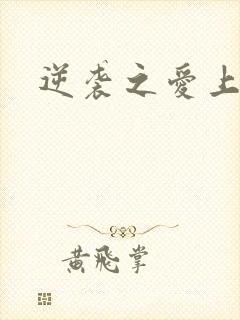 逆袭之愛上
黄飛掌